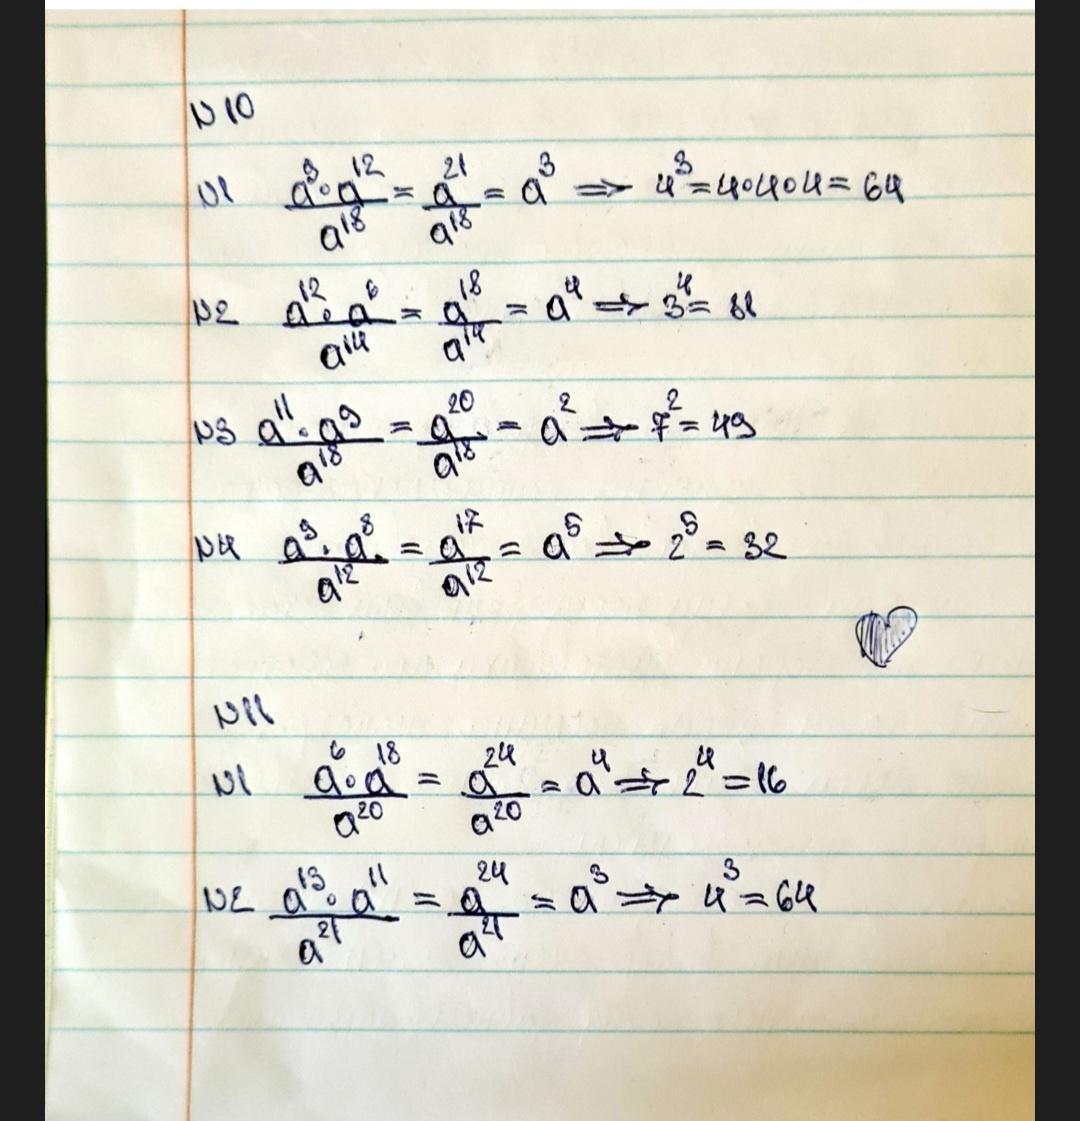 N10
N1 a⁹∘a¹²/a¹⁸ = a²¹/a¹⁸ = a³ ⇒ 4³=4∘4∘4= 64
N2 a¹²∘a⁶/a¹⁴ = a¹⁸/a¹⁴ = a⁴ ⇒ 3⁴= 81
N3 a¹¹·a⁹/a¹⁸ = a²⁰/a¹⁸ = a² ⇒ 7²= 49
N4 a⁹·a⁸/a¹² = a¹⁷/a¹² = a⁵ ⇒ 2⁵ = 32
N11
N1 a⁶∘a¹⁸/a²⁰ = a²⁴/a²⁰ = a⁴ ⇒ 2⁴ =16
N2 a¹³∘a¹¹/a²¹ = a²⁴/a²¹ = a³ ⇒ 4³=64